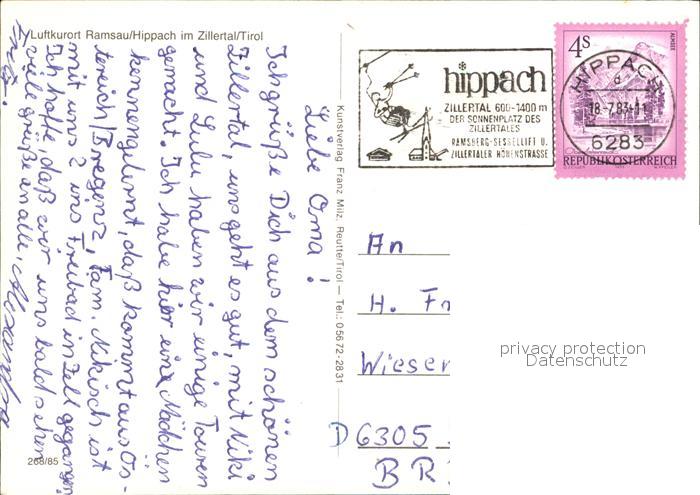 Luftkurort Ramsau/Hippach im Zillertal/Tirol
Liebe Oma!
Ich grüße Dich aus dem schönen
Zillertal, uns geht es gut, mit Niki
und Lulu haben wir einige Touren
gemacht. Ich habe hier ein Mädchen
kennengelernt, daß kommt aus Ös-
tereich/Bregenz, Fam. Nikisch ist
mit uns 2 ins Freibad in Zell gegangen
Ich hoffe, daß wir uns bald sehen
viele grüße an alle,
268/85
Kunstverlag Franz Milz, Reutte/Tirol — Tel.: 05672-2831
hippach
ZILLERTAL 600-1400 m
DER SONNENPLATZ DES
ZILLERTALES
RAMSBERG-SESSELLIFT U.
ZILLERTALER HÖHENSTRASSE
4S
ALMSEE
HIPPACH
d
18-7.83-11
6283
REPUBLIK ÖSTERREICH
An
H. Fr
Wieser
D 6305
BR
privacy protection
Datenschutz